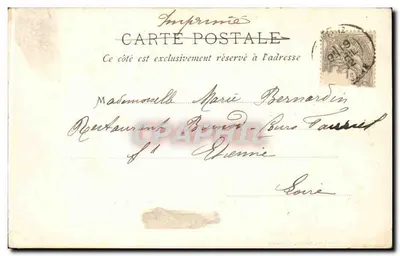 Imprimé
CARTE POSTALE
Ce côté est exclusivement réservé à l'adresse
Mademoiselle Marie Bernardin
Restaurant Cours Fauriel
St Etienne
Loire